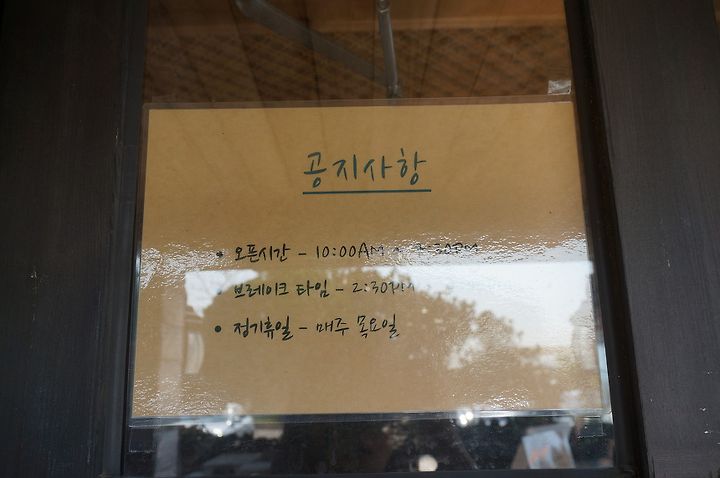 공지사항
• 오픈시간 - 10:00AM
• 브레이크 타임 - 2:30PM
• 정기휴일 - 매주 목요일